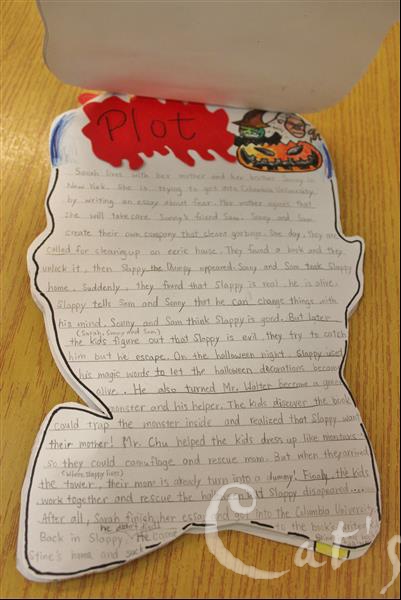 Plot
Sarah lives with her mother and her brother Sonny in
New York. She is trying to get into Columbia University
by writing an essay about fear. Her mother agrees that
she will take care Sonny's friend Sam. Sonny and Sam
create their own company that cleans garbage. One day, they are
called for cleaning up an eerie house. They found a book and they
unlock it, then Slappy the Dummy appeared. Sonny and Sam took Slappy
home. Suddenly, they found that Slappy is real. he is alive.
Slappy tells Sam and Sonny that he can change things with
his mind. Sonny and Sam think Slappy is good. But later
(Sarah, Sonny and Sam)
the kids figure out that Slappy is evil. they try to catch
him but he escape. On the halloween night. Slappy uses
his magic words to let the halloween decorations become
alive. He also turned Mr. Walter become a green
monster and his helper. The kids discover the book
could trap the monster inside and realized that Slappy want
their mother! Mr. Chu helped the kids dress up like monsters
so they could camouflage and rescue mom. But when they arrived
(where Slappy lives)
the tower, their mom is already turn into a dummy! Finally, the kids
work together and rescue the and Slappy disappeared....
After all, Sarah finish her essay and got into the Columbia University
he didn't
Back in Slappy. He came to the book's writer
Stine's home and
Cat's